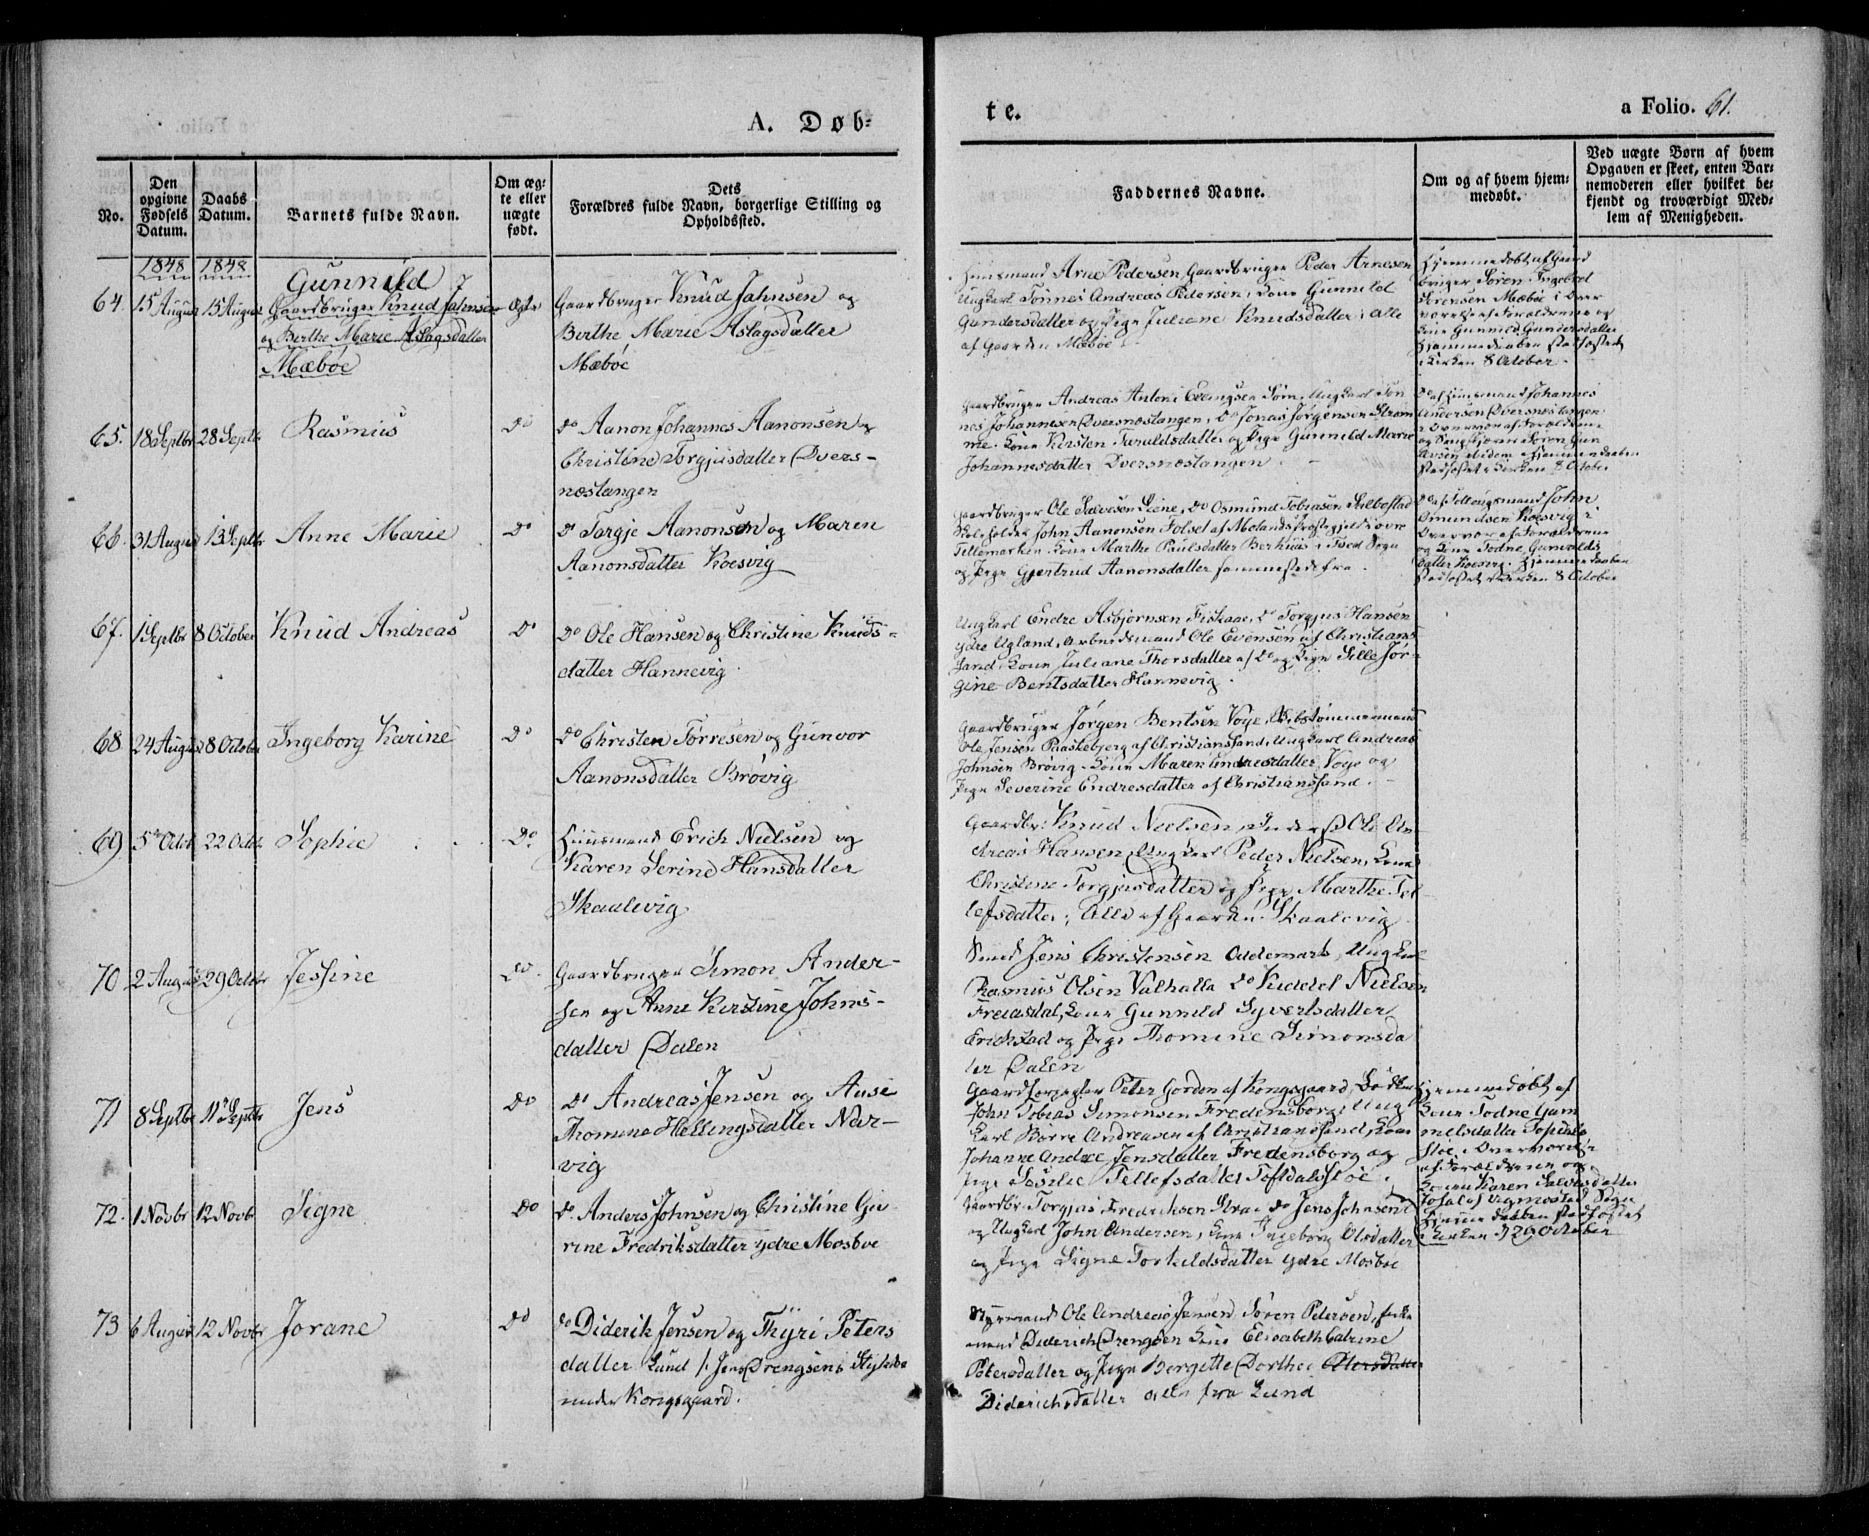 A. Døb-
te.
a Folio. 61.
No.
Den opgivne Fødsels Datum.
Daabs Datum.
Barnets fulde Navn.
Om ægte eller uægte født.
Dets
Forældres fulde Navn, borgerlige Stilling og
Opholdssted.
Faddernes Navne.
Om og af hvem hjem-
medøbt.
Ved uægte Børn af hvem
Opgaven er skeet, enten Bar-
nemoderen eller hvilket be-
kjendt og troværdigt Med-
lem af Menigheden.
1848 1848
64. 15 August 15 August
Gunnild
Gaardbruger Knud Jahnsen
og Berthe Marie Aslagsdatter
Mæbøe
Ægte
Gaardbruger Knud Jahnsen og
Berthe Marie Aslagsdatter
Mæbøe
Huusmand Arne Pedersen, Gaardbruger Peder Arnesen
Ungkarl Tønnes Andreas Pedersen, Kone Gunnild
Gundersdatter og Pige Juliane Knudsdatter; Alle
af Gaarden Mæbøe
Hjemmedøbt af Gaard
bruger Søren Ingebret
Sørensen Mæbøe i Over
værelse af Forældrene og
Kone Gunnild Gundersdatter
Hjemmedaaben stadfæstet
i Kirken 8 October
65. 18 Septbr 28 Septbr Rasmus Do
Do Aanon Johannes Aanonsen og
Christine Torgjusdatter Dvers-
næstangen
Gaardbruger Andreas Antoni Evensen Søm, Ungkarl Tøn
nes Johannesen Dversnæstangen, Do Jonas Jørgensen Strøm
me. Kone Kirsten Taraldsdatter og Pige Gunnild Marie
Johannesdatter Dversnæstangen.
Do af Huusmand Johannes
Andersen Dversnæstangen
i Overvær af Forældrene
og
Hjemmedaaben
stadfæstet i Kirken 8 October
66. 31 August 13 Septbr Anne Marie Do
Do Torgje Aanonsen og Maren
Aanonsdatter Kosvig
Gaardbruger Ole Salvesen Liene, Do Osmund Tobiasen
Skoleholder John Aanonsen Folset af Molands Præstegjeld i øvre
Tellemarken Kone Marthe Paulsdatter i Sogn
og Pige Gjertrud Aanonsdatter sammestedsfra.
Do af John
Omundsen Kosvig i
Overvær af Forældrene
og Kone Todne Gunvalds
datter Kosvig. Hjemmedaaben
stadfæstet i Kirken 8 October
67. 1 Septbr 8 October Knud Andreas Do
Do Ole Hansen og Christine Knuds-
datter Hannevig.
Ungkarl Endre Asbjørnsen Fiskaae, Do Torgjus Hansen
ydre Ugland, Arbeidsmand Ole Evensen af Christians
sand, Kone Juliane Thorsdatter af Do og Pige Sille Jør-
gine Bentsdatter Hannevig.
68 24 August 8 October Ingeborg Karine Do
Do Christen Torresen og Gunvor
Aanonsdatter Brøvig
Gaardbruger Jørgen Bentsen Voge, Skibstømmermand
Ole Jensen Paaskebjerg af Christianssand, Ungkarl Andreas
Johnsen Brøvig Kone Maren Andresdatter Voge og
Pige Severine Endresdatter af Christianssand.
69 5te Octob 22 Octob. Sophie Do.
Huusmand Erich Nielsen og
Karen Serine Hansdatter
Skaalevig
Gaardbr: Knud Nielsen, Ole An-
dreas Hansen, Ungkarl Peder Nielsen, Kone
Christine Torgjusdatter og Pige Marthe Tel-
lefsdatter; Alle af Gaarden Skaalevig
70 2 August 29 Octobr Jessine Do.
Gaardbruger Simon Ander-
sen og Anne Kirstine Johns-
datter Dalen
Smed Jens Christensen Oddemark, Ungkarl
Rasmus Olsen Valhalla Do Kuddel Nielsen
Freiasdal, Kone Gunnild Syvertsdatter
Erichstad og Pige Thomine Simonsda
ter Dalen
71 8 Septbr 11te Septbr Jens Do
Do Andreas Jensen og Aase
Thomine Hellingsdatter Nar-
vig
Gaardforpagter Peter Gordon af Kongsgaard, Bødker
John Tobias Simonsen Fredensborg, Ung
karl Børre Andreasen af Christianssand, Kone
Johanne Andrea Jensdatter Fredensborg og
Pige Tellefsdatter Toftdalstøe.
Hjemmedøbt af
Kone Todne Gam
melsdatter
støe i Overværelse
af Forældrene og
Konen Karen Salvesdatter
Sogn
Hjemmedaaben stadfæstet
i Kirken d 29 October
72. 1 Novbr 12 Novb Signe Do
Do. Anders Johnsen og Christine Gu-
rine Fredriksdatter ydre Mosbøe
Gaardbr: Torgjus Fredriksen Straie Do Jens Johnsen
og Ungkarl John Andersen, Kone Ingeborg Olsdatter
og Pige Signe Torkildsdatter ydre Mosbøe
73 6 August 12 Novbr Jorane Do
Do Diderik Jensen og Thyri Peters
datter Lund /: Jens Drengsens Stykke
under Kongsgaard.
Styrmand Ole Andreas Jensen Søren Petersen,
mand Diderich Drengsen Kone Elisabeth Catrine
Petersdatter og Pige Bergitte Dorthea Petersdatter
Diderichsdatter alle fra Lund